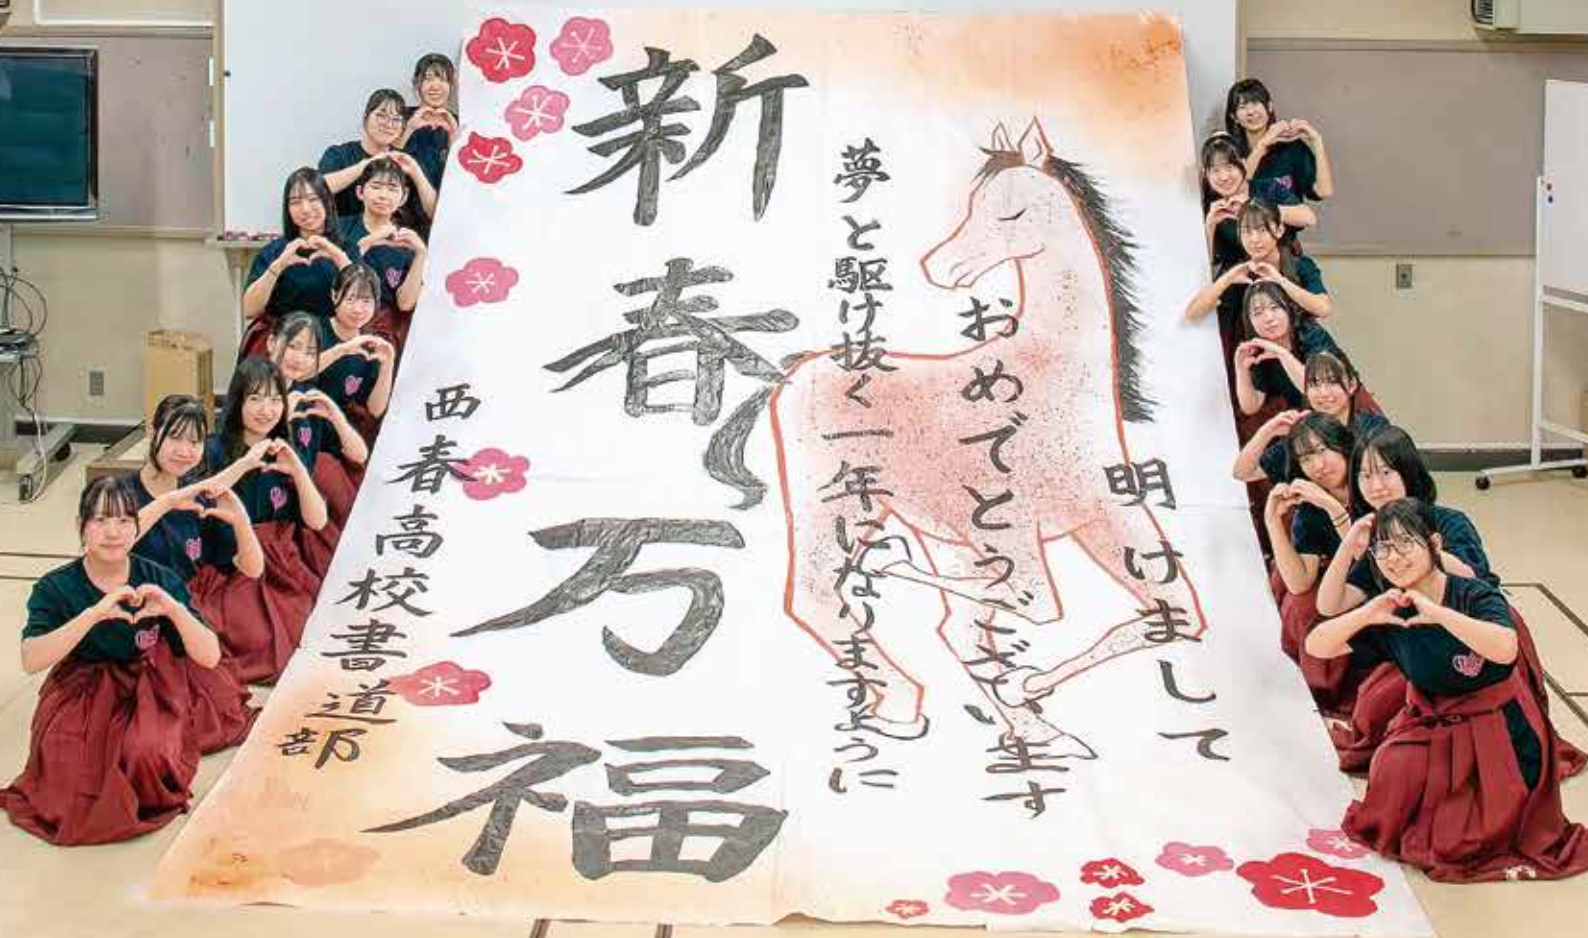 明けまして
おめでとうございます
夢と駆け抜く一年になりますように
新春万福
西春高校書道部